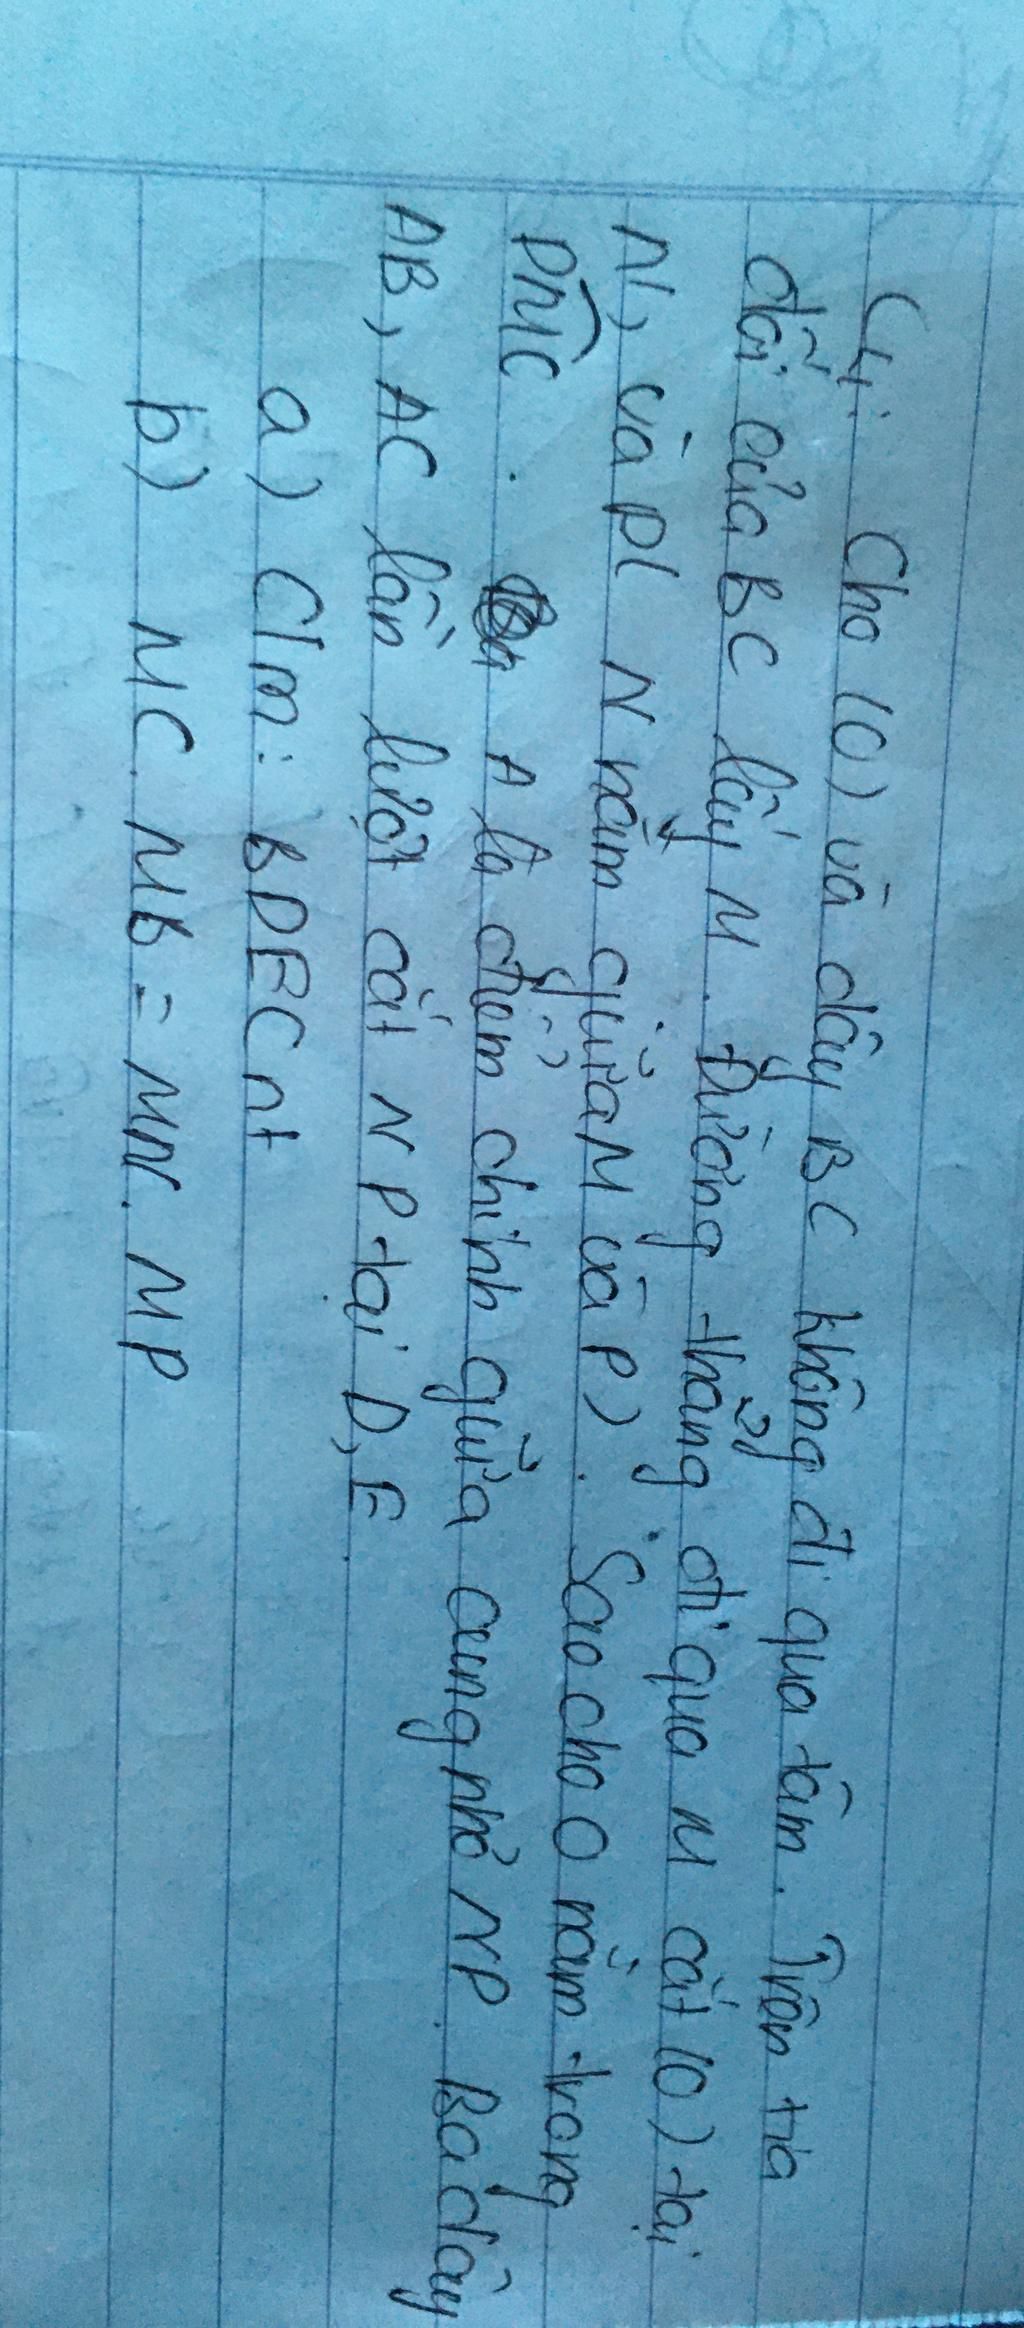 C4: Cho (O) và dây BC không đi qua tâm. Trên tia
đối của BC lấy M. Đường thẳng đi qua M cắt (O) tại
N, và P( N nằm giữa M và P). Sao cho O nằm trong
PMC. A là điểm chính giữa cung nhỏ NP. Ba dây
AB, AC lần lượt cắt NP tại D, E.
a) C/m: BDEC nt
b) MC. MB = MN. MP